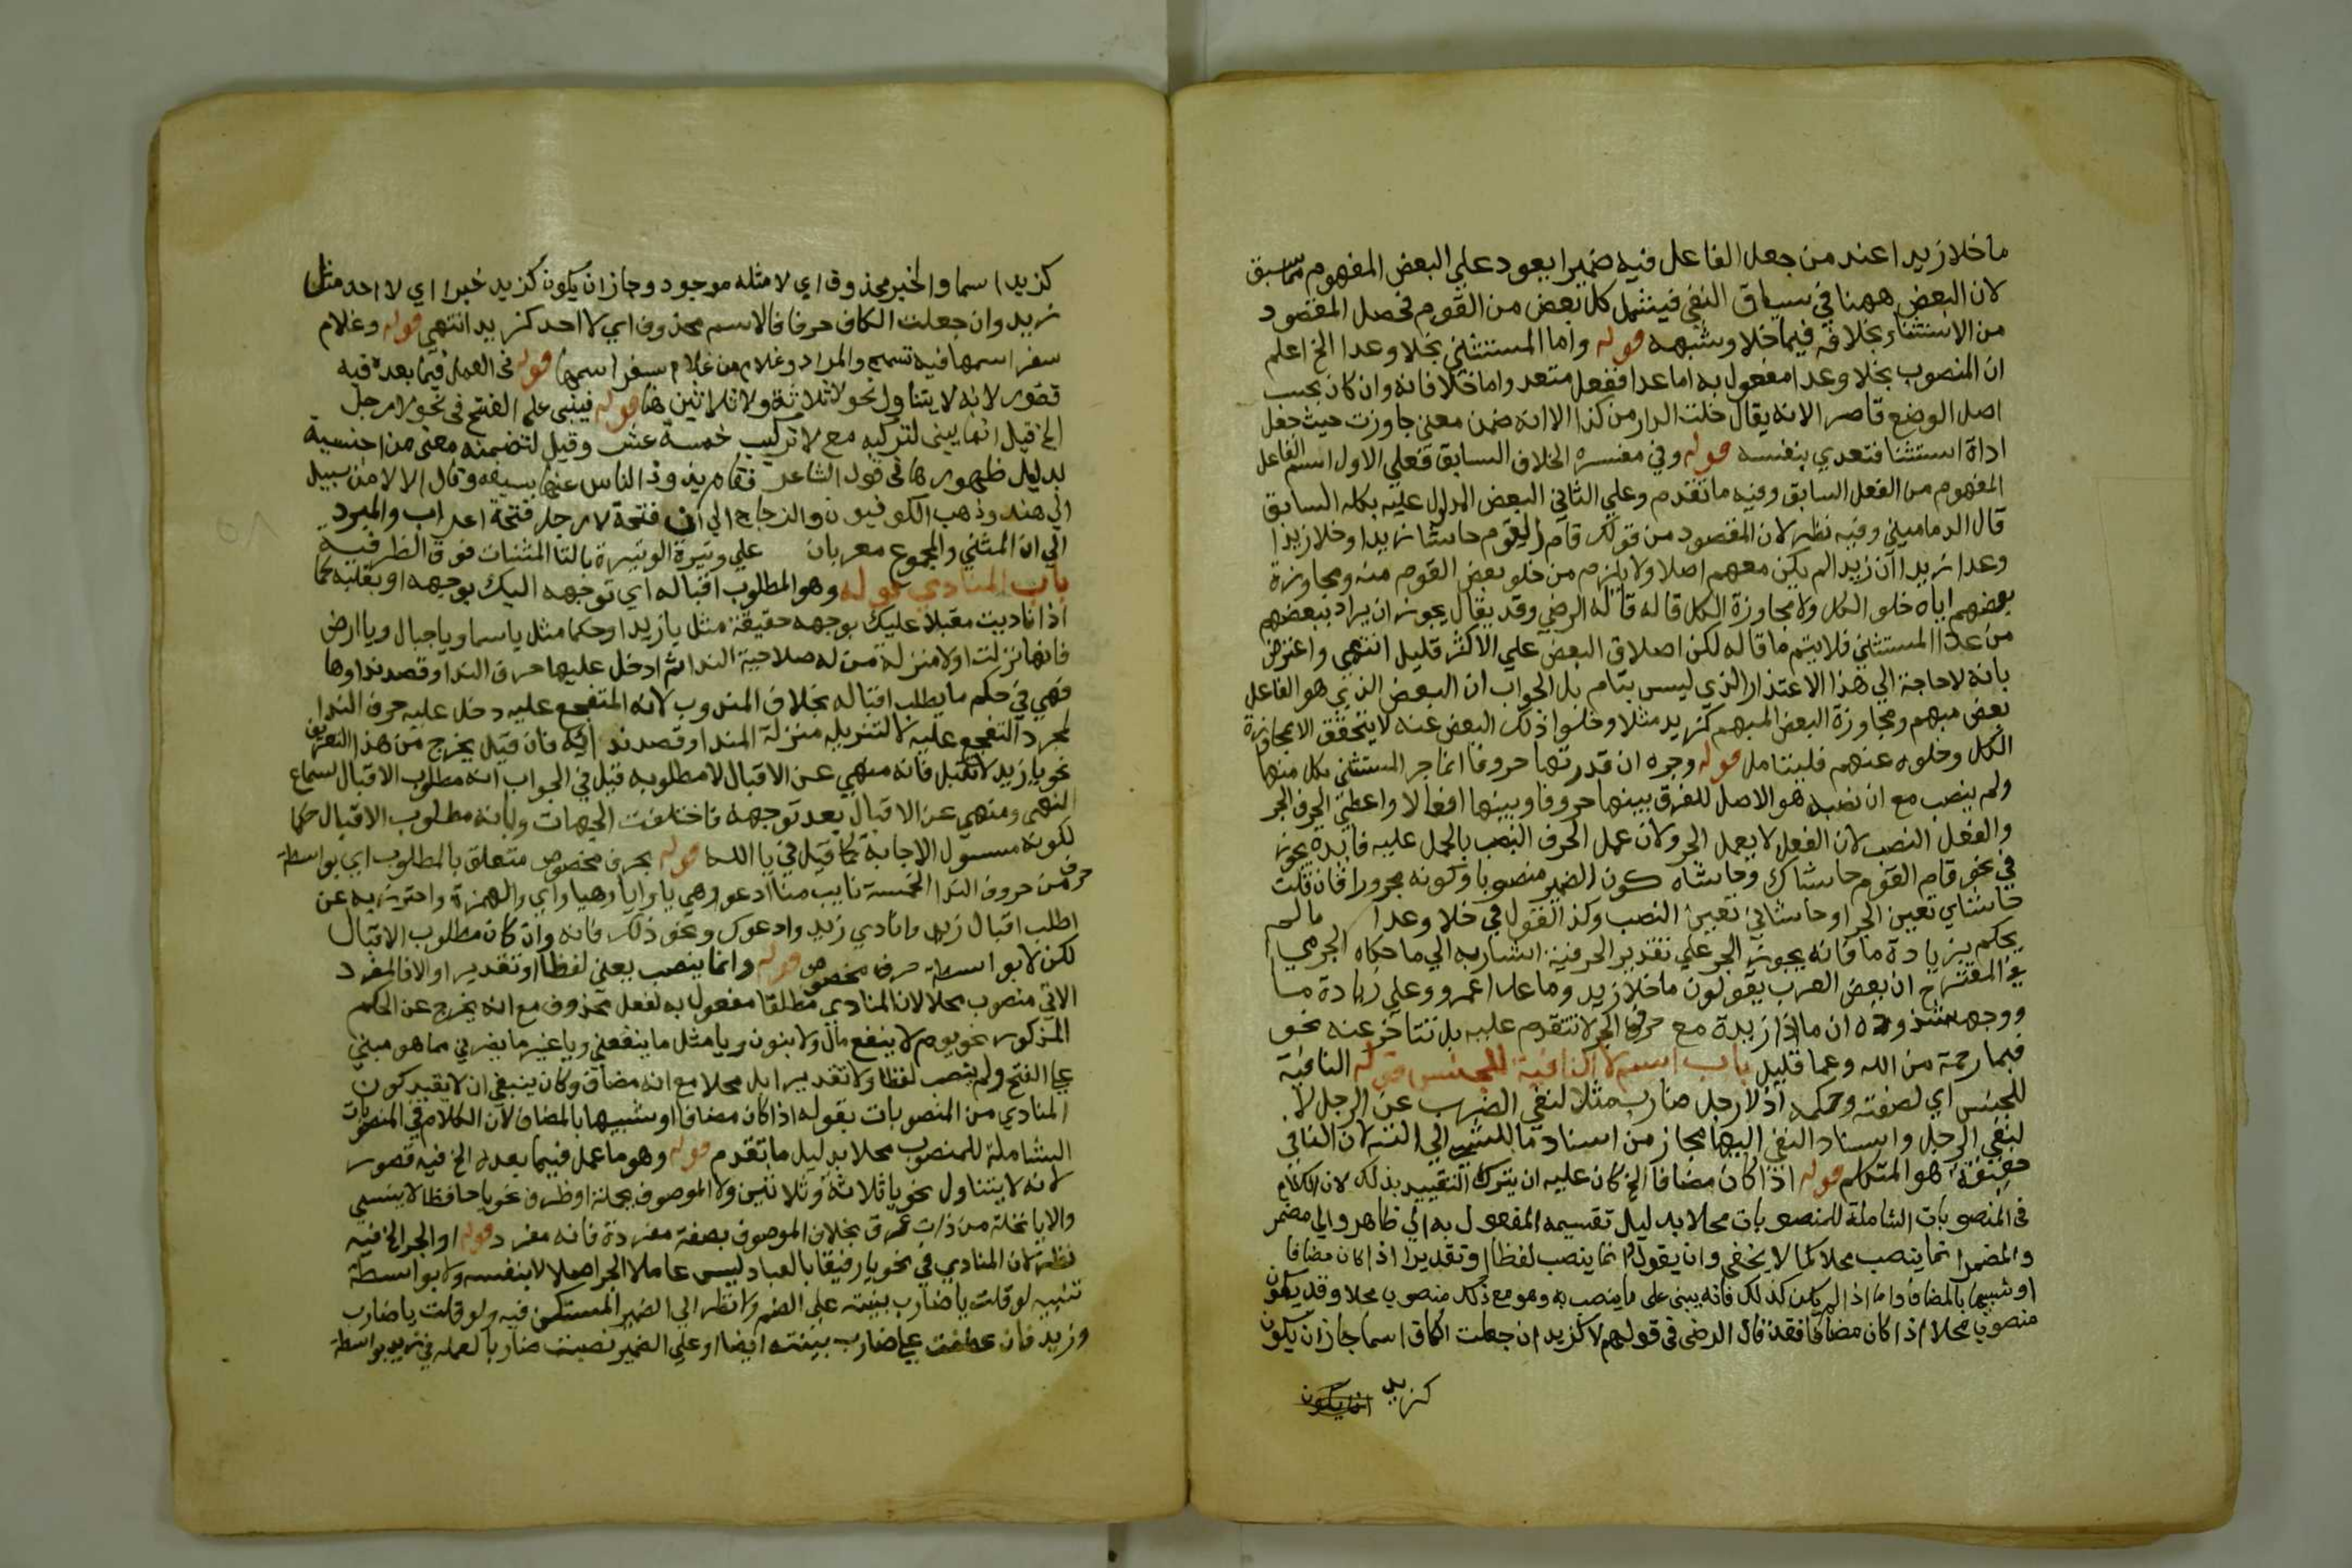 ما خلا زيدا عند من جعل الفاعل فيه ضميرا يعود علي البعض المفهوم مما سبق
لان البعض ههنا في سياق النفي فيشمل كل بعض من القوم فحصل المقصود
من الاستثناء بخلافه فيما خلا وشبهه قوله واما المستثني بخلا وعدا الخ اعلم
ان المنصوب بخلا وعدا مفعول به اما عدا ففعل متعد واما خلا فانه وان كان بحسب
اصل الوضع قاصر الانه يقال خلت الدار من كذا الا انه ضمن معني جاوزت حيث جعل
اداة استثنا فتعدي بنفسه قوله وفي مفسره الخلاف السابق فعلي الاول اسم الفاعل
المفهوم من الفعل السابق وفيه ما تقدم وعلي الثاني البعض المدلول عليه بكله السابق
قال الدماميني وفيه نظر لان المقصود من قولك قام القوم حاشا زيدا وخلا زيدا
وعدا زيدا ان زيدا لم يكن معهم اصلا ولا يلزم من خلو بعض القوم منه ومجاوزة
بعضهم اياه خلو الكل ولا مجاوزة الكل قاله قاله الرضي وقد يقال يجوز ان يراد ببعضهم
من عدا المستثني فلا يتم ما قاله لكن اطلاق البعض علي الاكثر قليل انتهي واعترض
بانه لا حاجة الي هذا الاعتذار الذي ليس بتام بل الجواب ان البعض الذي هو الفاعل
بعض مبهم ومجاوزة البعض المبهم كزيد مثلا وخلو ذلك البعض عنه لا يتحقق الا بمجاوزة
الكل وخلوه عنهم فليتامل قوله وجره ان قدرتها حروفا انما جر المستثني بكل منها
ولم ينصب مع ان نصبه هو الاصل للفرق بينها حروفا وبينها افعالا واعطي الحرف الجر
والفعل النصب لان الفعل لا يعمل الجر ولان عمل الحرف النصب بالحمل عليه فايده يجوز
في نحو قام القوم حاشاك وحاشاه كون الضمير منصوبا وكونه مجرورا فان قلت
حاشاي تعين الجر او حاشاني تعين النصب وكذا القول في خلا وعدا ما لم
يحكم بزيادة ما فانه يجوز الجر علي تقدير الحرفية اشار به الي ما حكاه الجرمي
في المقترح ان بعض العرب يقولون ما خلا زيد وما عدا عمرو وعلي زيادة ما
ووجه شذوذه ان ما اذا زيدة مع حرف الجر لا تتقدم عليه بل تتاخر عنه نحو
فبما رحمة من الله وعما قليل باب اسم لا النافية للجنس قوله النافية
للجنس اي لصفته وحكمه اذ لا رجل ضارب مثلا لنفي الضرب عن الرجل لا
لنفي الرجل واسناد النفي اليها مجاز من اسناد ما للشي الي الته لان النافي
حقيقة هو المتكلم قوله اذا كان مضافا الخ كان عليه ان يترك التقييد بذلك لان الكلام
في المنصوبات الشاملة للمنصوبات محلا بدليل تقسيمه المفعول به الي ظاهر والي مضمر
والمضمر انما ينصب محلا كما لا يخفي وان يقول وانما ينصب لفظا او تقديرا اذا كان مضافا
او شبيها بالمضاف واما اذا لم يكن كذلك فانه يبني علي ما ينصب به وهو مع ذلك منصوب محلا وقد يكون
منصوبا محلا اذا كان مضافا فقد قال الرضي في قولهم لا كزيد ان جعلت الكاف اسما جاز ان يكون
كزيد
كزيد اسما والخبر محذوف اي لا مثله موجود وجاز ان يكون كزيد خبرا اي لا احد مثل
زيد وان جعلت الكاف حرفا فالاسم محذوف اي لا احد كزيد انتهي قوله وغلام
سفر اسمها فيه تسمح والمراد وغلام من غلام سفر اسمها قوله في العمل فيما بعده فيه
قصور لانه لا يتناول نحو لا ثلاثة ولا ثلاثين هنا قوله فيبني علي الفتح في نحو لا رجل
الخ قيل انما بني لتركبه مع لا تركيب خمسة عشر وقيل لتضمنه معني من الجنسية
بدليل ظهورها في قول الشاعر فقام يذود الناس عنها بسيفه وقال الا لا من سبيل
الي هند وذهب الكوفيون والزجاج الي ان فتحة لا رجل فتحة اعراب والمبرد
الي ان المثني والمجموع معربان علي وتيرة الوتيرة بالتا المثنات فوق الطرفية
باب المنادي قوله وهو المطلوب اقباله اي توجهه اليك بوجهه او بقلبه كما
اذا ناديت مقبلا عليك بوجهه حقيقة مثل يا زيد او حكما مثل يا سما ويا جبال ويا ارض
فانها نزلت اولا منزلة من له صلاحية الندا ثم ادخل عليها حرف الندا وقصد نداوها
فهي في حكم ما يطلب اقباله بخلاف المندوب لانه المتفجع عليه دخل عليه حرف الندا
لمجرد التفجع عليه لا لتنزيله منزلة المندا وقصد ندائه فان قيل يخرج من هذا التعريف
نحو يا زيد لا تقبل فانه منهي عن الاقبال لا مطلوبه قيل في الجواب انه مطلوب الاقبال لسماع
النهي ومنهي عن الاقبال بعد توجهه فاختلفت الجهات وبانه مطلوب الاقبال حكما
لكونه مسيول الاجابة كما قيل في يا الله قوله بحرف مخصوص متعلق بالمطلوب اي بواسطة
حرف من حروف الندا الخمسة نايب مناب ادعو وهي يا وايا وهيا واي والهمزة واحترز به عن
اطلب اقبال زيد وانادي زيد وادعوك ونحو ذلك فانه وان كان مطلوب الاقبال
لكن لا بواسطة حرف مخصوص قوله وانما ينصب يعني لفظا او تقديرا والا فالمفرد
الاتي منصوب محلا لان المنادي مطلقا مفعول به لفعل محذوف مع انه يخرج عن الحكم
المذكور نحو يوم لا ينفع مال ولا بنون ويا مثل ما ينفعني ويا غير ما يضرني مما هو مبني
علي الفتح ولم ينصب لفظا ولا تقديرا بل محلا مع انه مضاف وكان ينبغي ان لا يقيد كون
المنادي من المنصوبات بقوله اذا كان مضافا او شبيها بالمضاف لان الكلام في المنصوبات
الشاملة للمنصوب محلا بدليل ما تقدم قوله وهو ما عمل فيما بعده الخ فيه قصور
لانه لا يتناول نحو يا ثلاثة وثلاثين ولا الموصوف بجملة او ظرف نحو يا حافظا لا ينسي
والا يا نخلة من ذات عرق بخلاف الموصوف بصفة مفردة فانه مفرد قوله او الجر الخ فيه
نظر لان المنادي في نحو يا رفيقا بالعباد ليس عاملا الجر اصلا لا بنفسه ولا بواسطة
تنبيه لو قلت يا ضارب بنيته علي الضم ولا نظر الي الضمير المستكن فيه ولو قلت يا ضارب
وزيد فان عطفت علي ضارب بنيته ايضا او علي الضمير نصبت ضاربا لعمله في زيد بواسطة